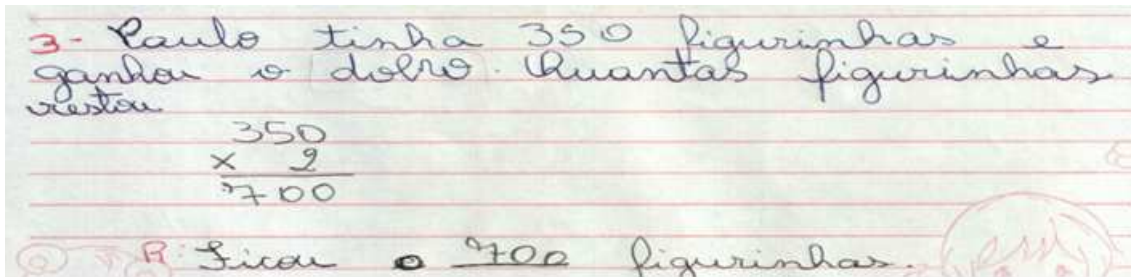 3- Paulo tinha 350 figurinhas e
ganhou o dobro. Quantas figurinhas
restou
350
x 2
700
R: Ficou o 700 figurinhas.